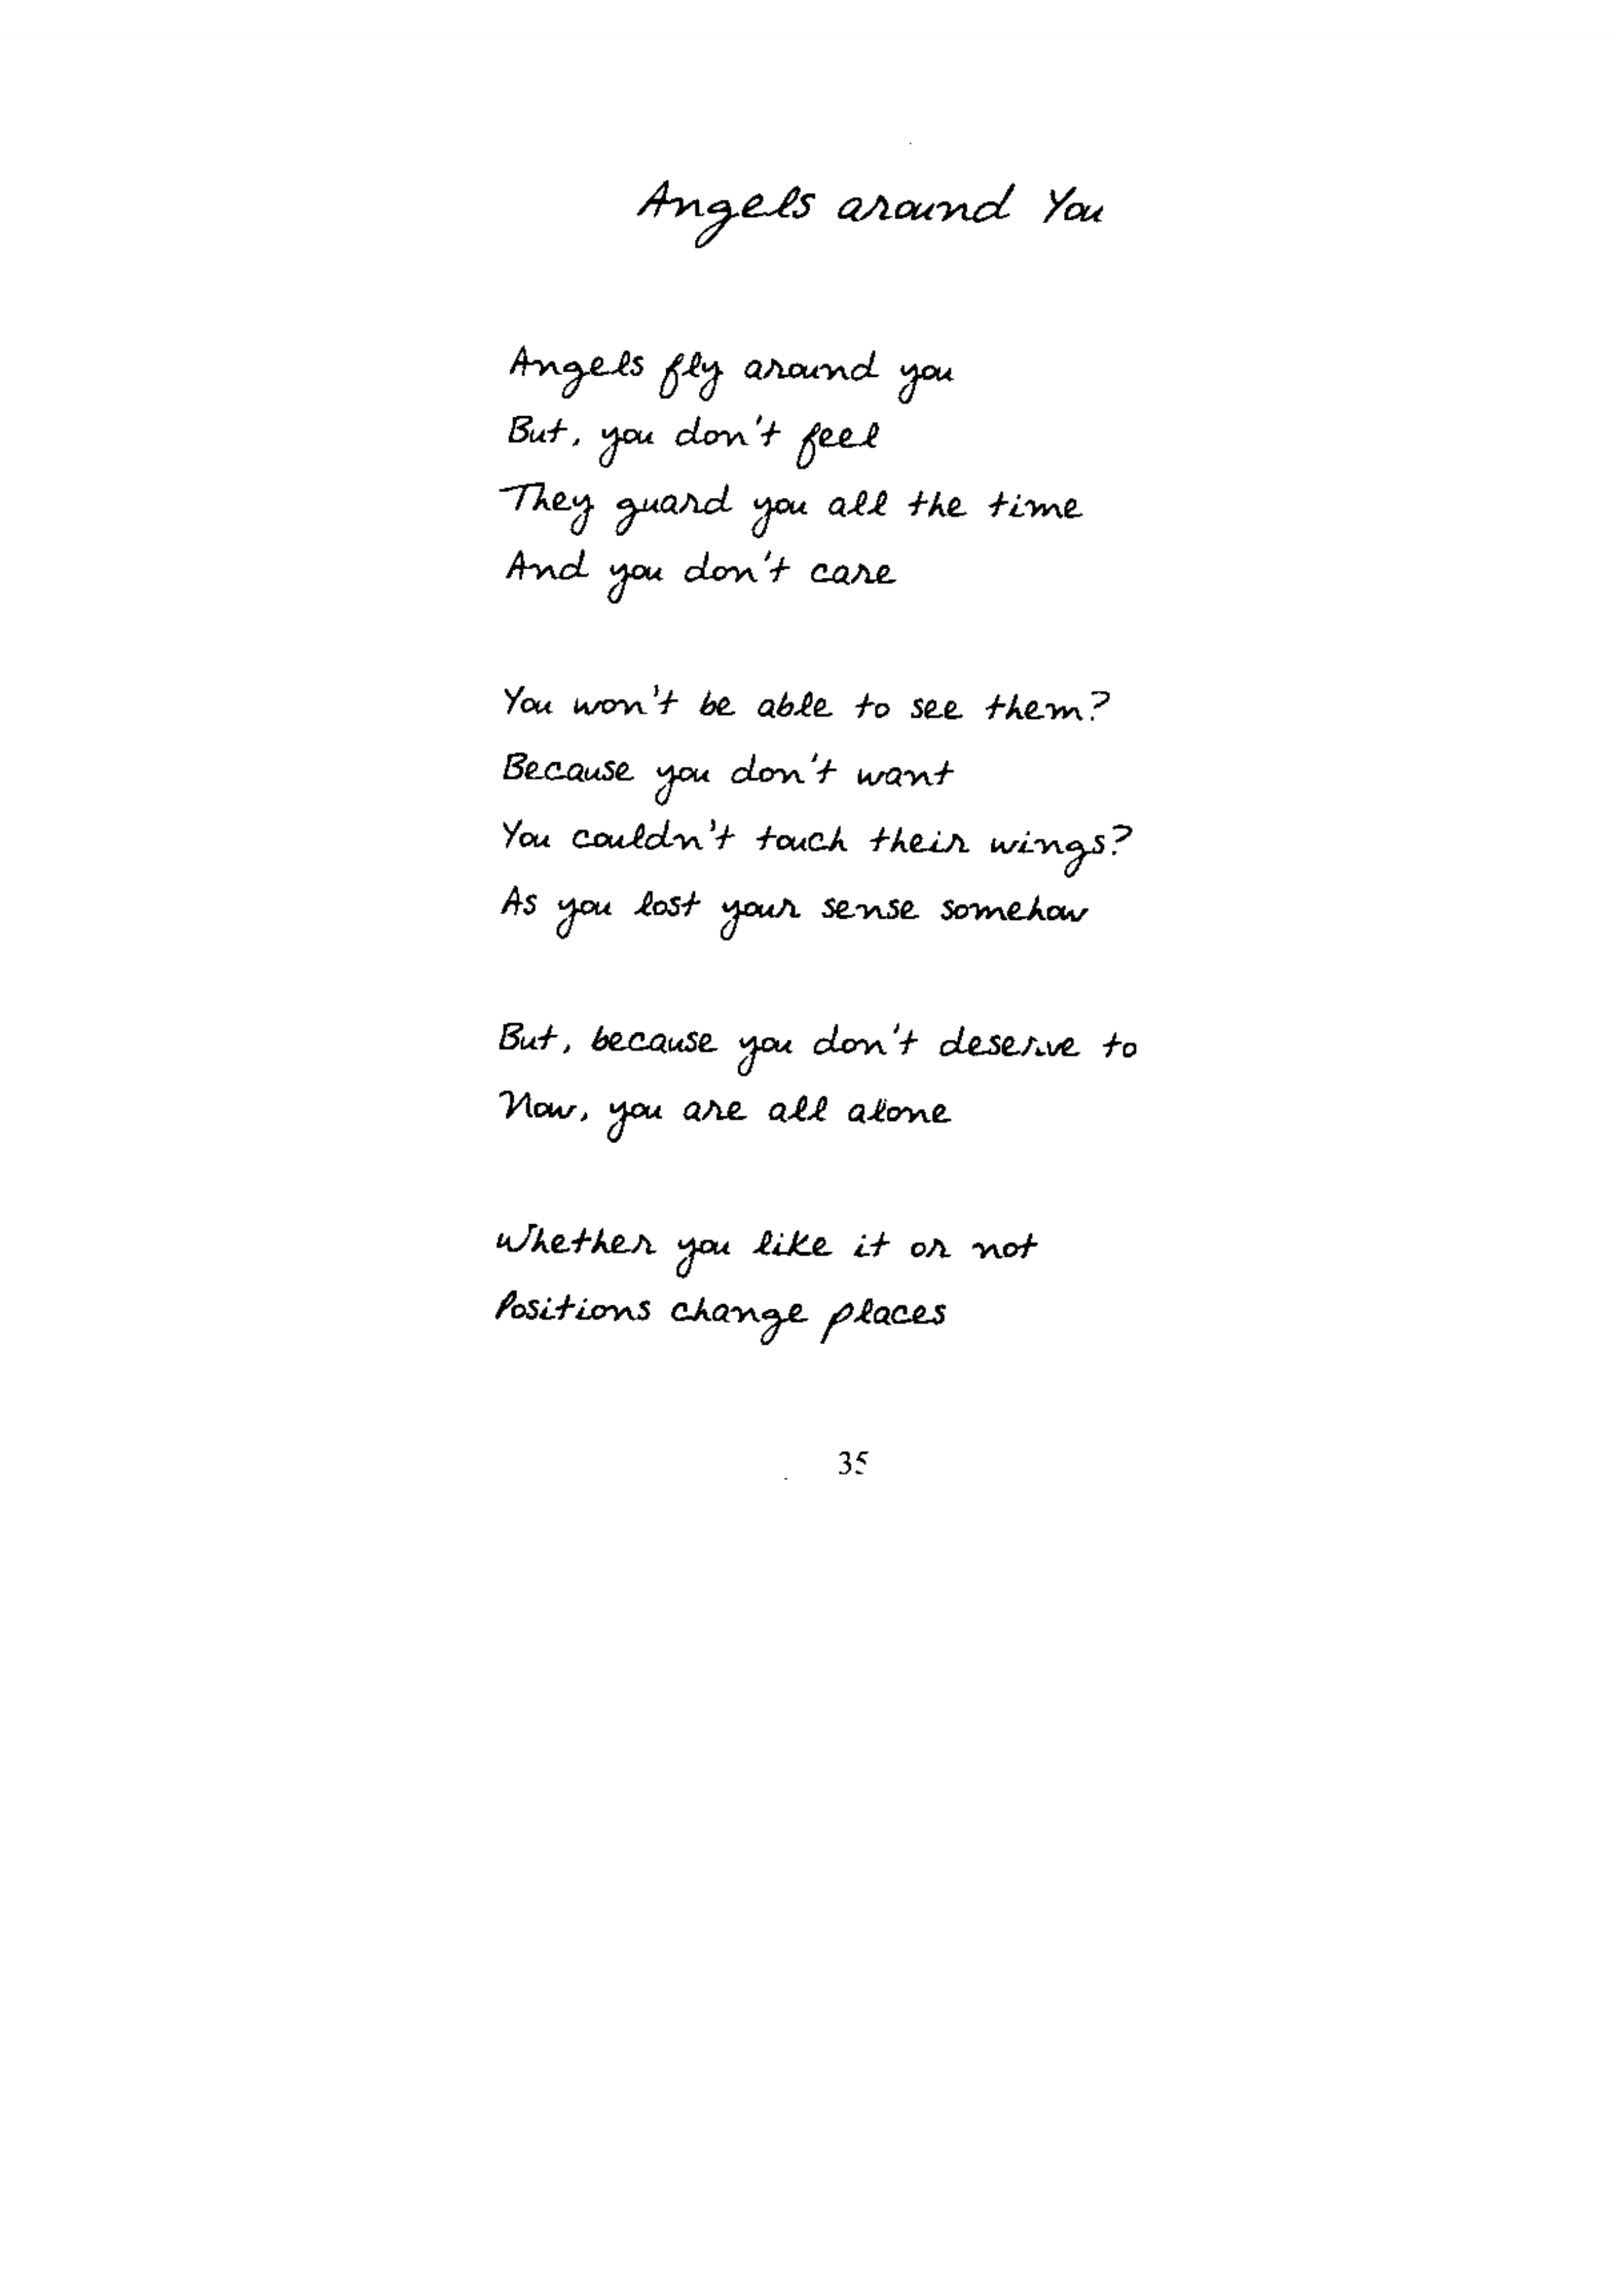 Angels around You
Angels fly around you
But, you don't feel
They guard you all the time
And you don't care
You won't be able to see them?
Because you don't want
You couldn't touch their wings?
As you lost your sense somehow
But, because you don't deserve to
Now, you are all alone
Whether you like it or not
Positions change places
35